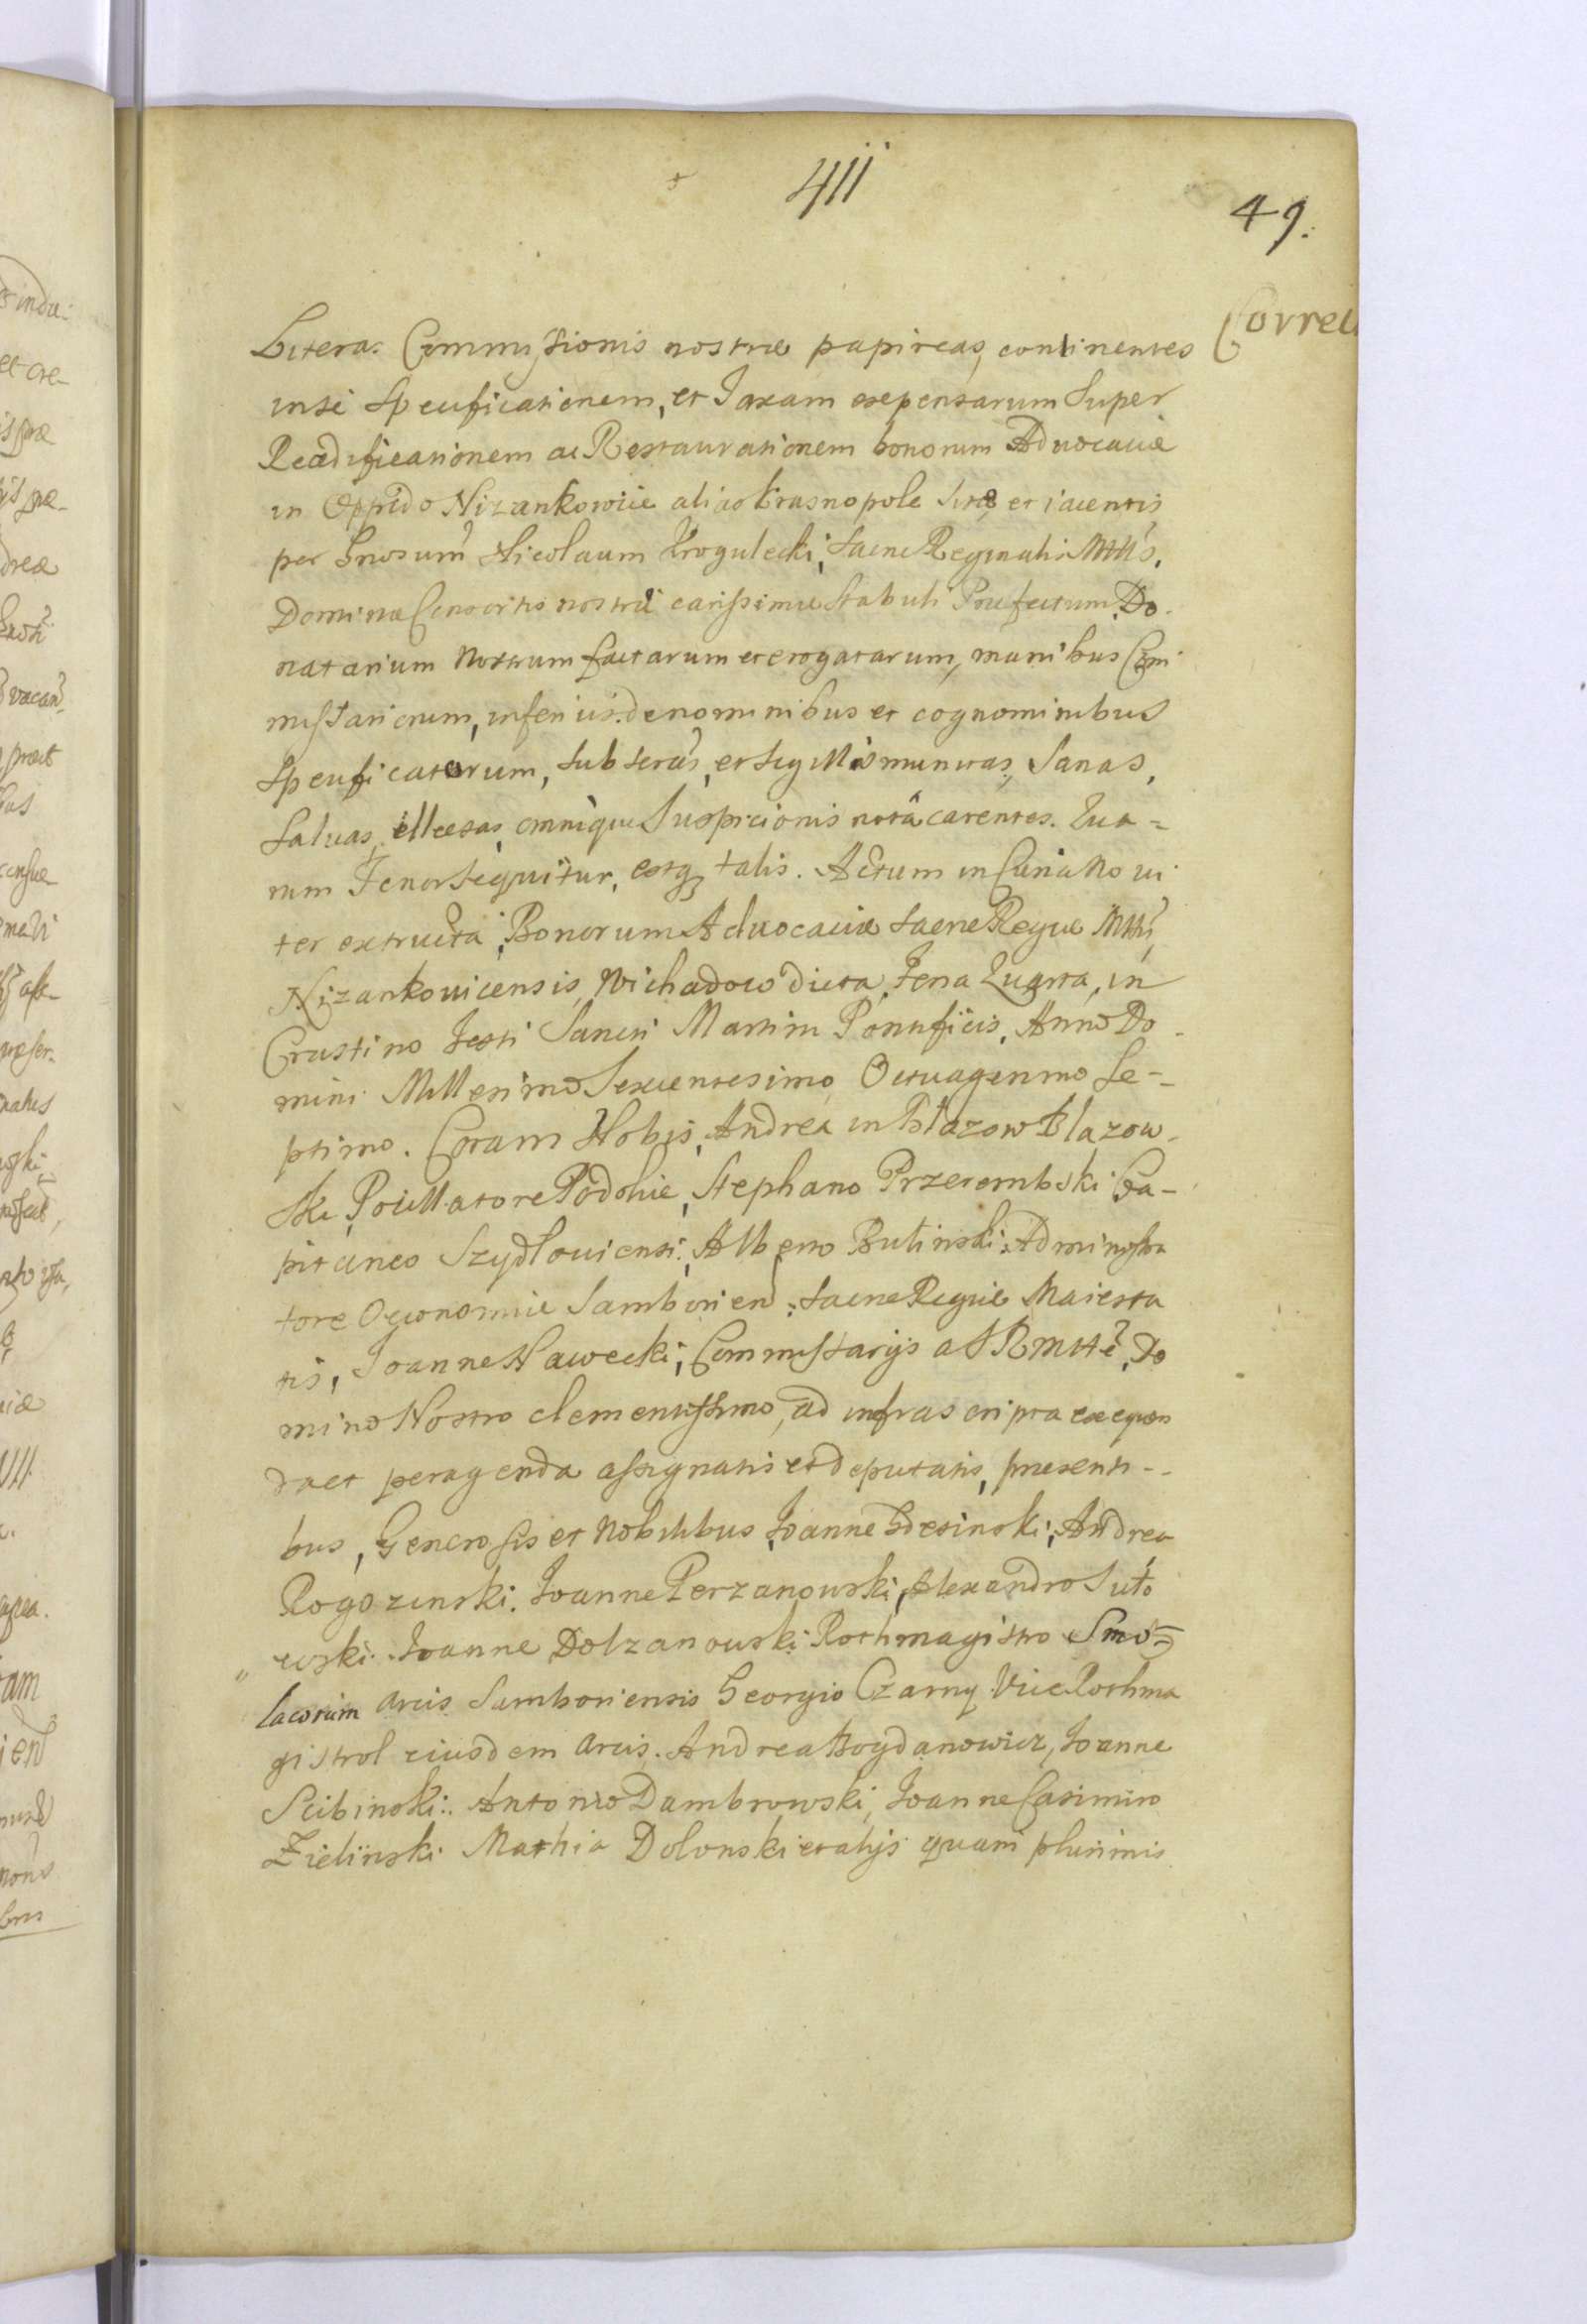 411
49.
Correc
Litera. Commissionis nostræ papireas, continentes
in se Specificationem, et Taxam expensarum Super
Reædificationem ac Restaurationem bonorum Advocatiæ
in Oppido Nizankowice alias Krasnopole sitæ et iacentis
per Gnosum Nicolaum Krogulecki, Sacræ Reginalis Mttis,
Dominæ Consortis nostræ carissimæ Stabuli Præfectum Do-
natarium Nostrum factarum et erogatarum, manibus Com
missariorum, inferius de nominibus et cognominibus
Specificatorum, Subscras, et Sigillis munitas, Sanas,
Salvas, illæsas, omnique Suspicionis notâ carentes. Qua-
rum Tenor Sequitur, estq talis. Actum in Curia novi
ter extructa, Bonorum Advocatiæ Sacræ Regiæ Mttis,
Nizankovicensis, Wichadow dicta, Feria Quarta, in
Crastino Festi Sancti Martini Pontificis, Anno Do-
mini Millesimo Sexcentesimo Octuagesimo Se-
ptimo. Coram Nobis, Andrea in Błazow Blazow-
ski, Pocillatore Podoliæ, Stephano Przerembski Ca-
pitaneo Szydłoviensi, Alberto Bulinski, Administra
tore Oeconomiæ Samborien: Sacræ Regiæ Maiesta
tis, Joanne Nawecki, Commissarijs a S R Mtte, Do
mino Nostro clementissimo, ad infrascripta exequen
da et peragenda assignatis et deputatis, præsenti-
bus, Generosis et Nobilibus, Joanne Gdesinski, Andrea
Rogozinski, Joanne Perzanowski, Alexandro Suło
wski. Joanne Dolzanowski Rothmagistro Smo-
lacorum arcis Samboriensis Georgio Czarny Vice Rothma
gistrol eiusdem arcis. Andrea Bogdanowicz, Joanne
Scibinski. Antonio Dambrowski, Joanne Casimiro
Zielinski Mathia Dolonski et alijs quam plurimis